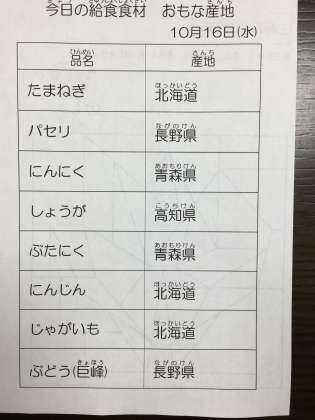 今日の給食食材　おもな産地
10月16日(水)
品名　産地
たまねぎ　北海道
パセリ　長野県
にんにく　青森県
しょうが　高知県
ぶたにく　青森県
にんじん　北海道
じゃがいも　北海道
ぶどう(巨峰)　長野県